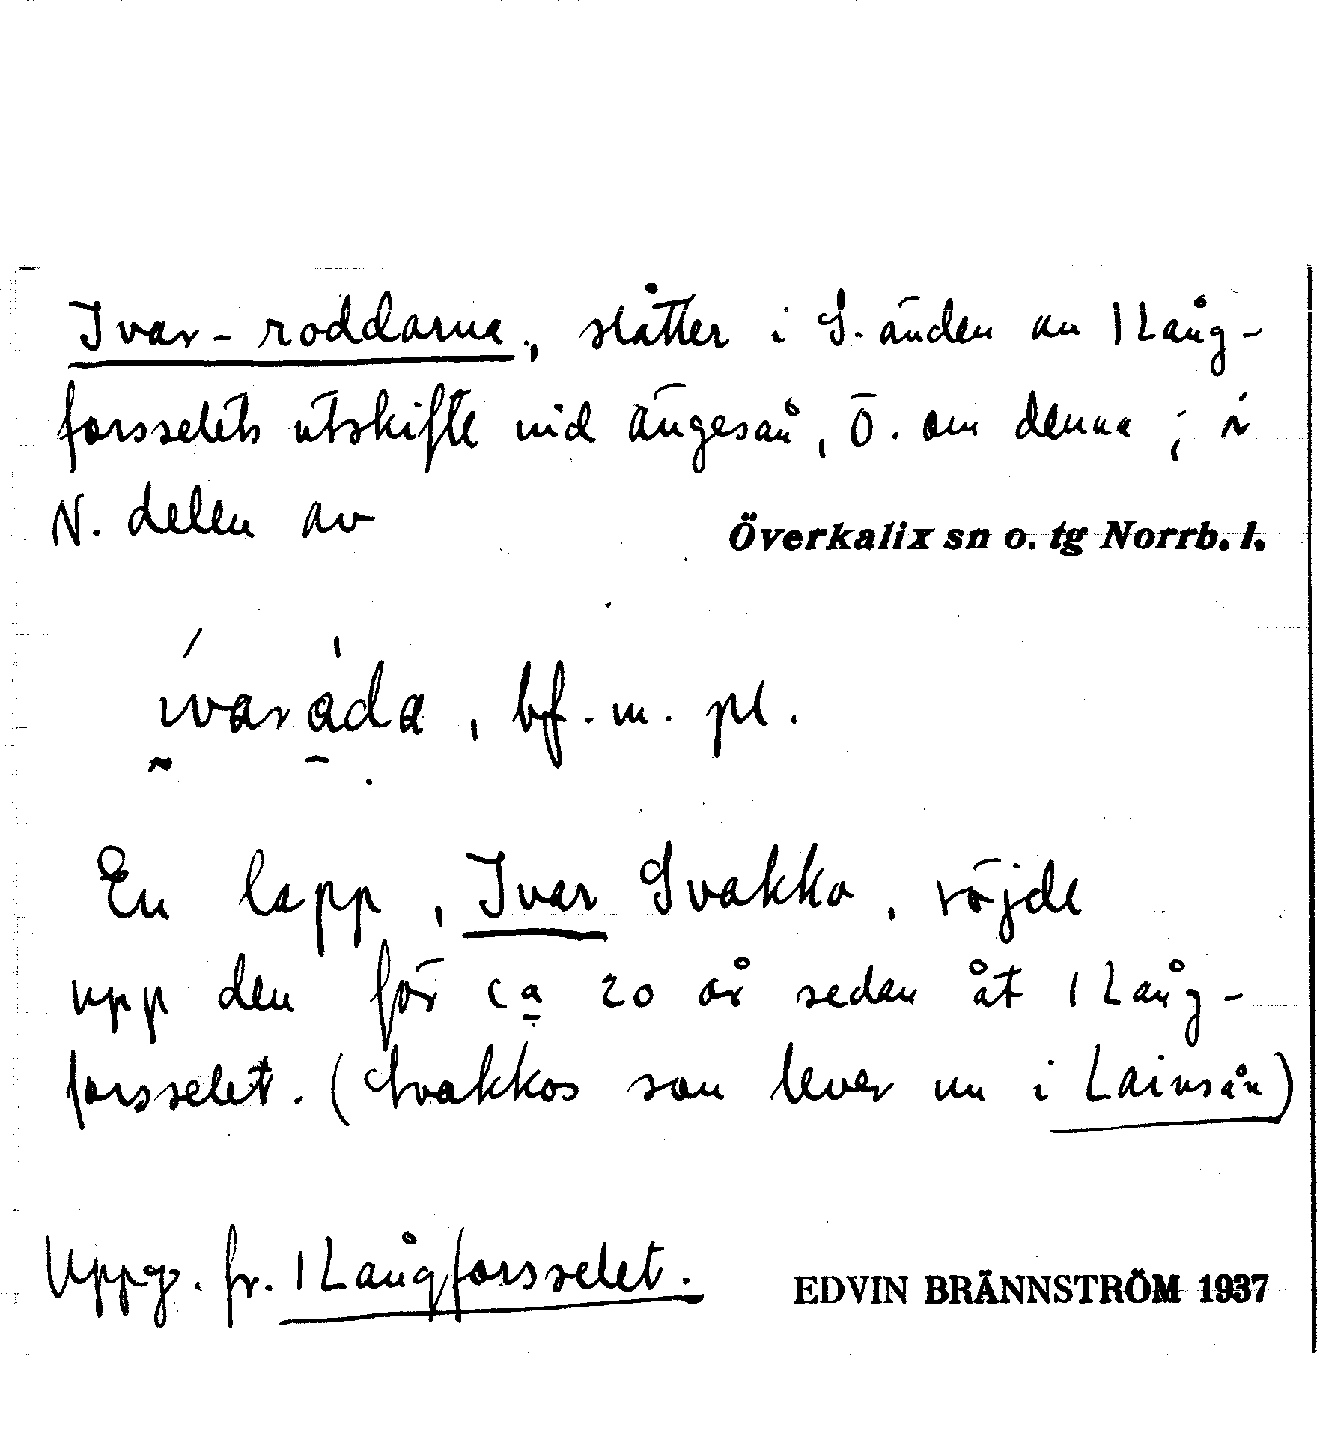 Ivar-roddarna, slåtter i S. änden av 1 Lång-
forsselets utskifte vid Ängesån, Ö. om denna; i
N. delen av
Överkalix sn o. tg Norrb. l.
ivaråda, bf. m. pl.
En lapp, Ivar Svakko, röjde
upp den för ca 20 år sedan åt 1 Lång-
forsselet. (Svakkos son lever nu i Lainsån)
Uppg. fr. 1 Långforsselet.
EDVIN BRÄNNSTRÖM 1937